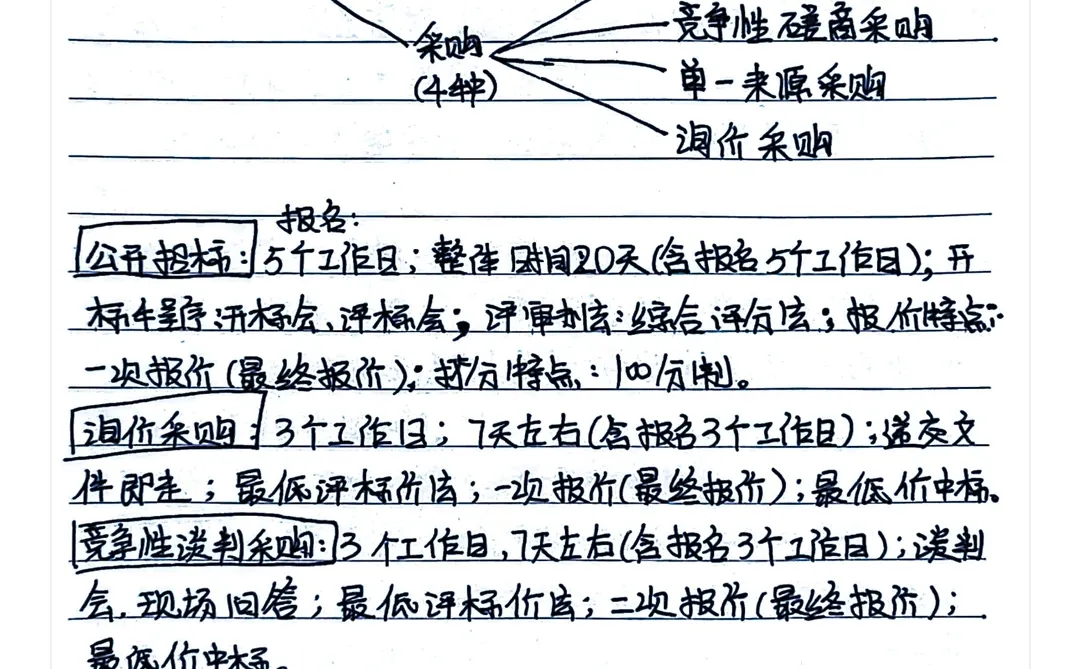 竞争性磋商采购
采购
(4种)
单一来源采购
询价采购
报名:
公开招标: 5个工作日; 整体时间20天(含报名5个工作日); 开
标程序:开标会、评标会; 评审办法:综合评分法; 报价特点:
一次报价(最终报价); 打分特点: 100分制。
询价采购: 3个工作日; 7天左右(含报名3个工作日); 递交文
件即走; 最低评标价法; 一次报价(最终报价); 最低价中标。
竞争性谈判采购: 3个工作日, 7天左右(含报名3个工作日); 谈判
会, 现场回答; 最低评标价法; 二次报价(最终报价);
最低价中标。